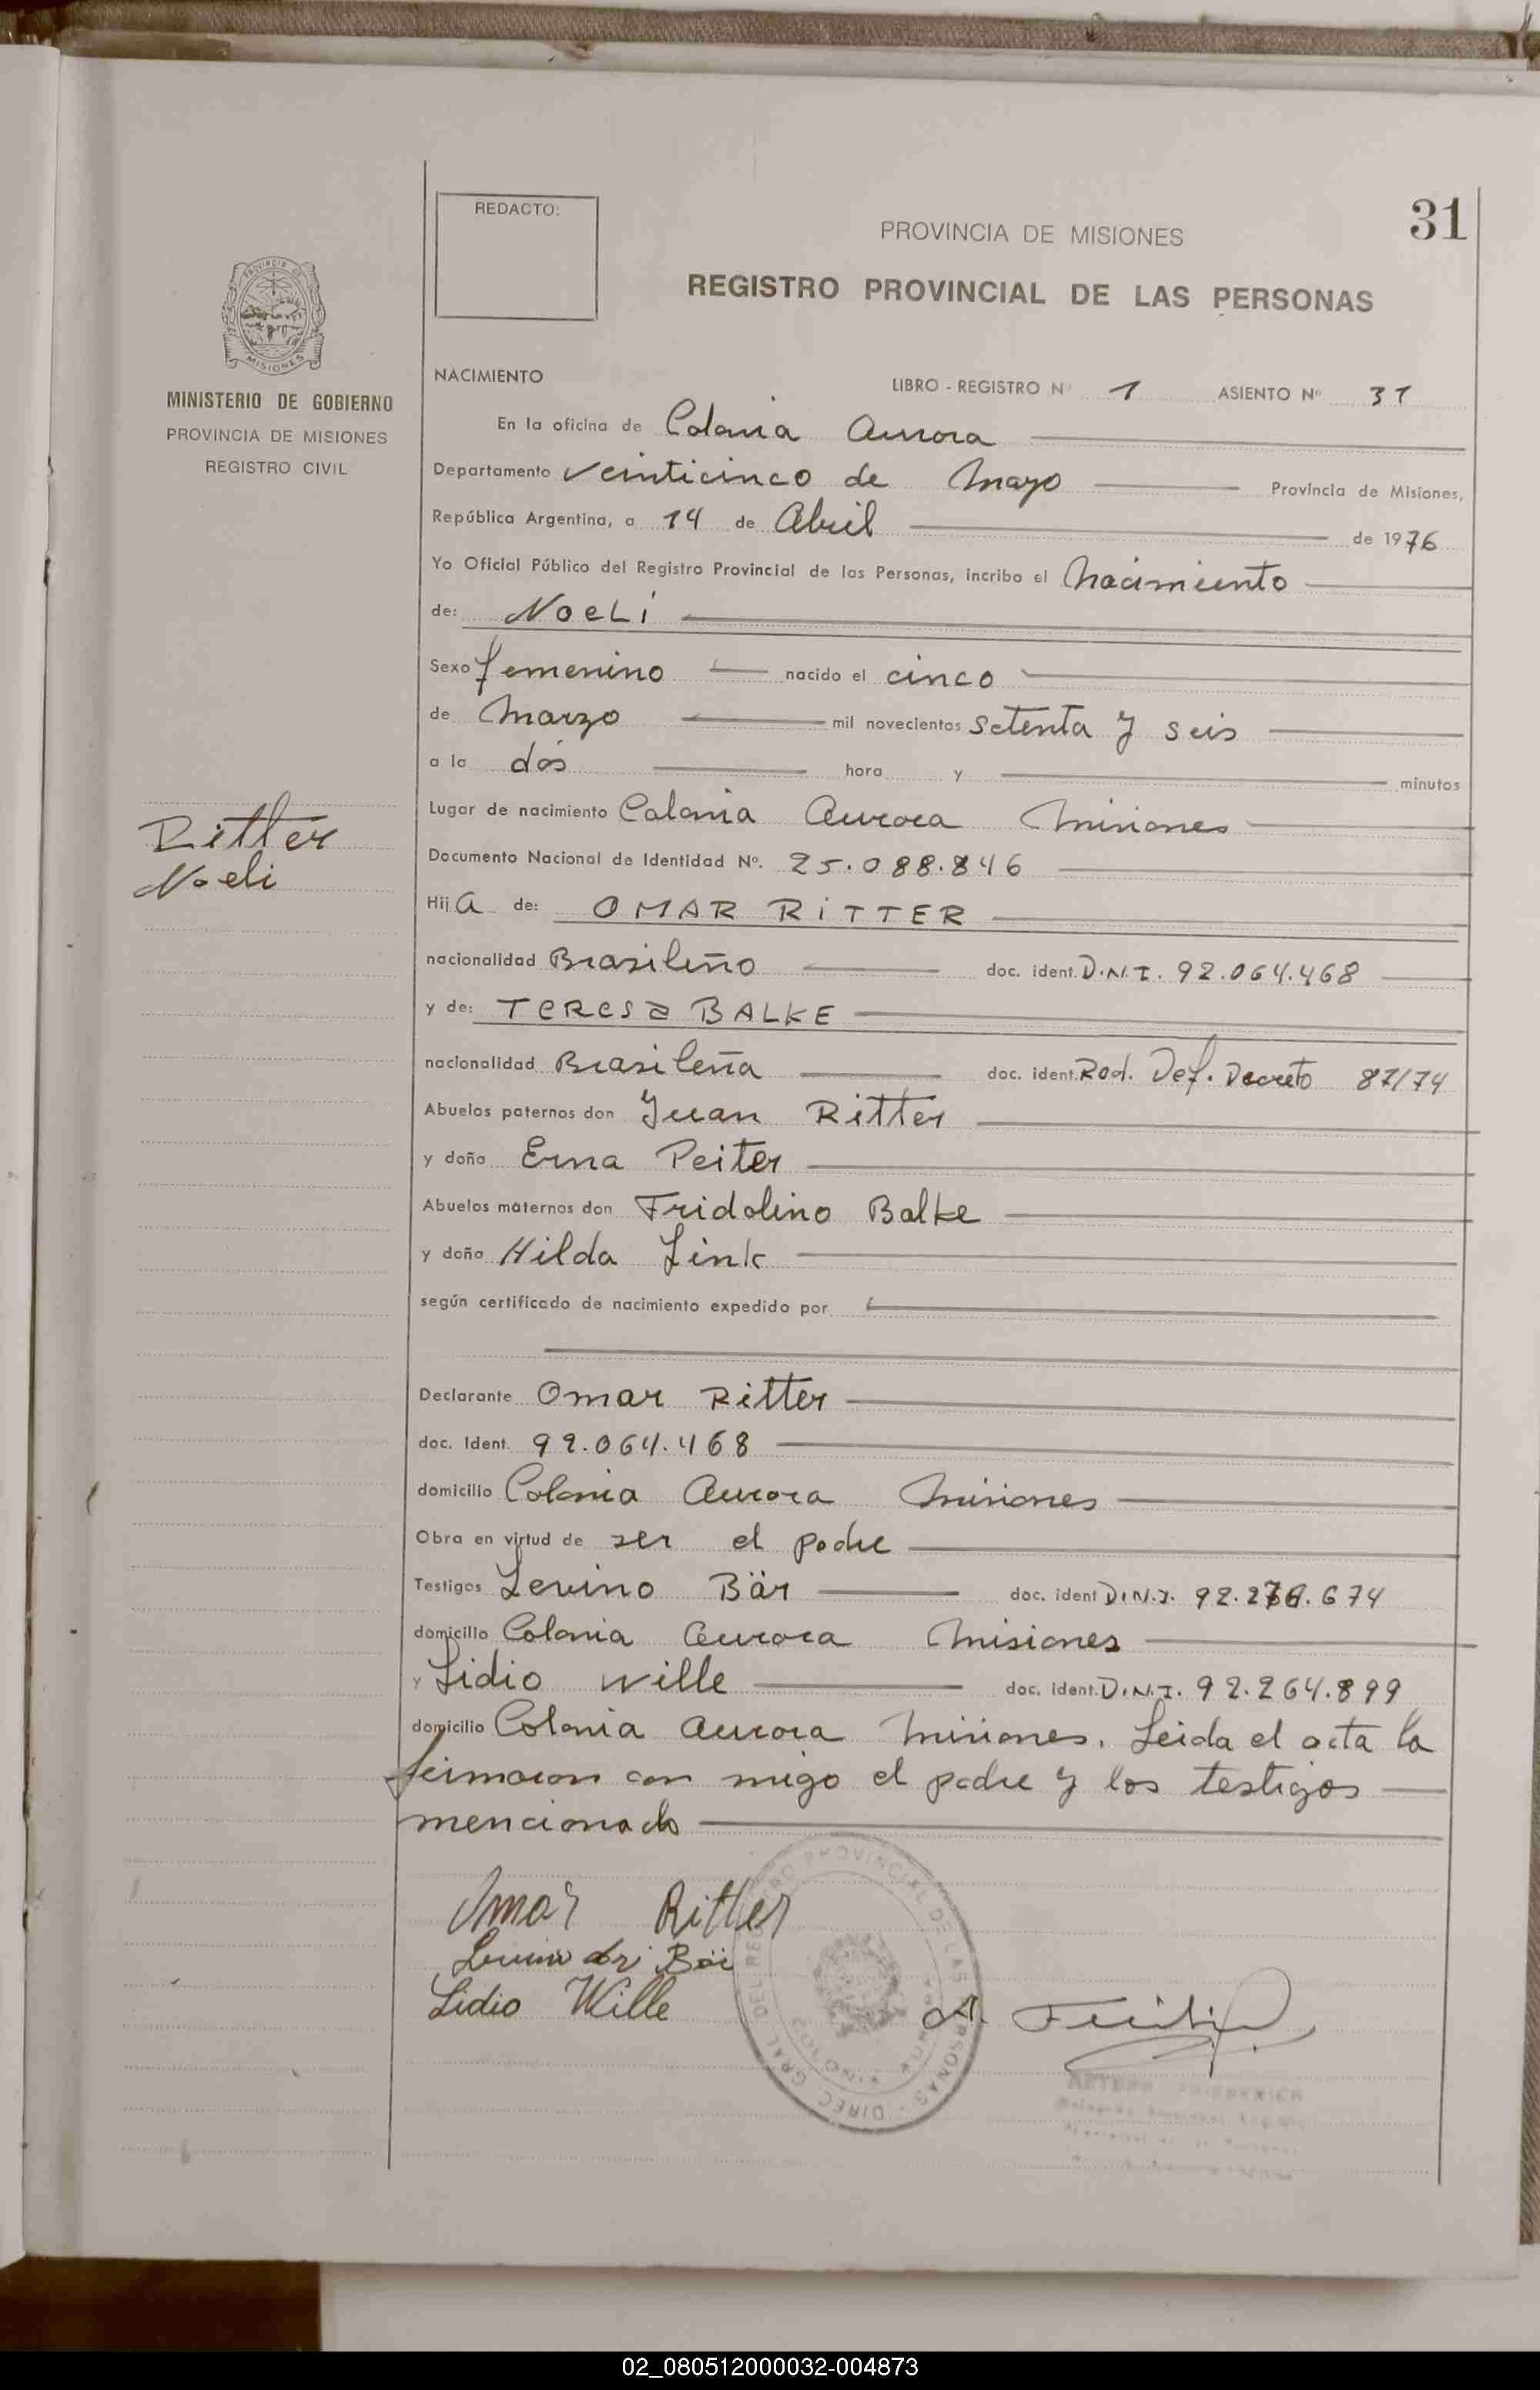 REDACTO:
PROVINCIA DE MISIONES
31
REGISTRO PROVINCIAL DE LAS PERSONAS
PROVINCIA DE
MISIONES
MINISTERIO DE GOBIERNO
PROVINCIA DE MISIONES
REGISTRO CIVIL
NACIMIENTO LIBRO - REGISTRO Nº 1 ASIENTO Nº 31
En la oficina de Colonia Aurora
Departamento Veinticinco de Mayo Provincia de Misiones,
República Argentina, a 14 de Abril de 1976
Yo Oficial Público del Registro Provincial de las Personas, incribo el Nacimiento
de: NOELI
Sexo femenino nacido el cinco
de Marzo mil novecientos setenta y seis
a la dos hora y minutos
Lugar de nacimiento Colonia Aurora Misiones
Ritter
Noeli
Documento Nacional de Identidad Nº. 25.088.846
Hija de: OMAR RITTER
nacionalidad Brasileño doc. ident. D.N.I. 92.064.468
y de: TERESA BALKE
nacionalidad Brasileña doc. ident. Rad. Def. Decreto 87/74
Abuelos paternos don Juan Ritter
y doña Erna Peiter
Abuelos maternos don Fridolino Balke
y doña Hilda Link
según certificado de nacimiento expedido por
Declarante Omar Ritter
doc. Ident. 92.064.468
domicilio Colonia Aurora Misiones
Obra en virtud de ser el padre
Testigos Levino Bär doc. ident D.N.I. 92.2 .674
domicilio Colonia Aurora Misiones
y Lidio Wille doc. ident. D.N.I. 92.264.899
domicilio Colonia Aurora Misiones. Leida el acta la
firmaron con migo el padre y los testigos
mencionado
Omar Ritter
Bär
Lidio Wille
DIREC. GRAL. DEL REGISTRO PROVINCIAL DE LAS PERSONAS
ARTURO FRIEDERICH
02_080512000032-004873